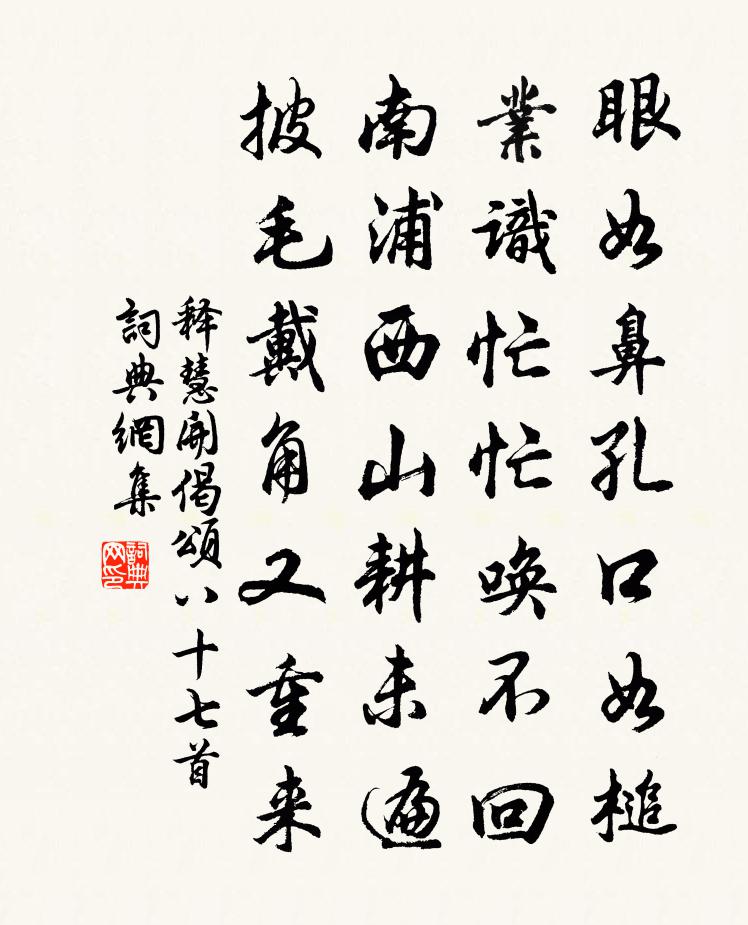 眼如鼻孔口如槌
業識忙忙喚不回
南浦西山耕未遍
披毛戴角又重来
释慧開偈頌八十七首
詞典網集
詞典网印